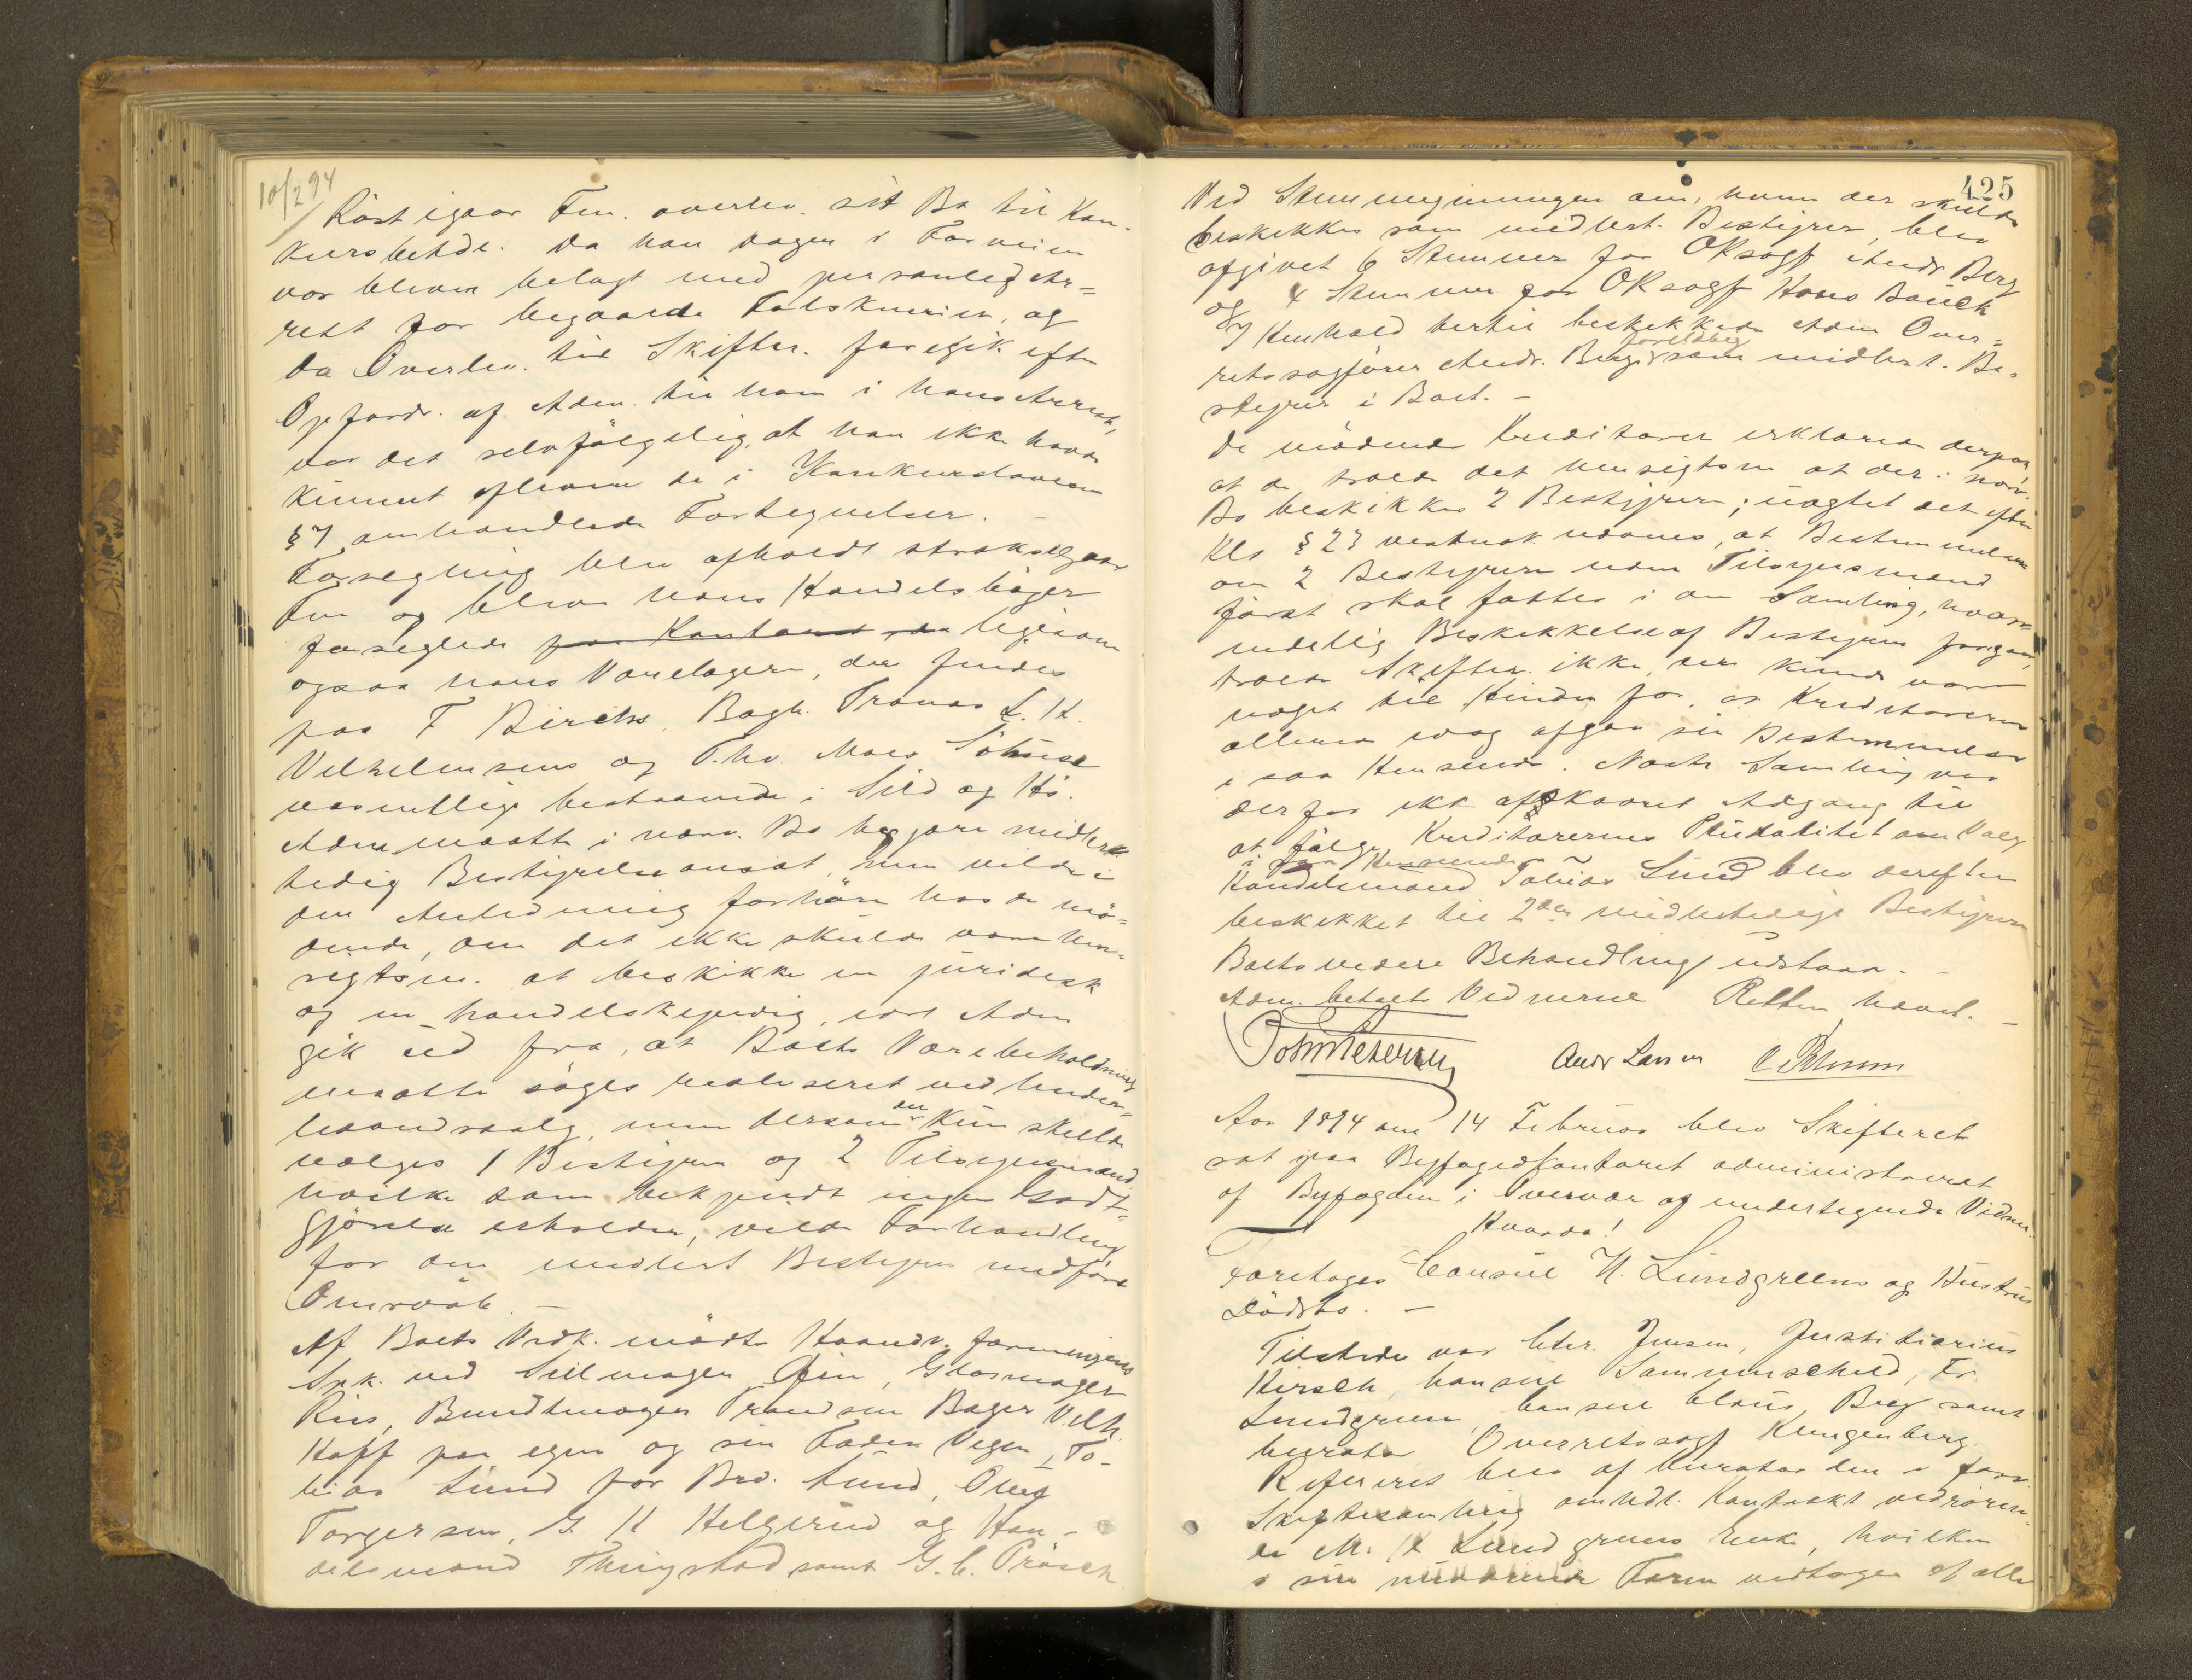 10/2 94
Räst igaar Fm. overlev. sit Bo til Kon-
kursbehdl. Da han dagen i Forveien
var bleven belagt med personlig Ar=
rest for begaaede Falsknerier, og
da Overlev. til Skifter. foregik efter
Opfordr. af Adm. til ham i hans Arrest,
var det selvfølgelig, at han ikke havde
kunnet aflevere de i Konkursloven
§ 7 omhandlede Fortegnelser. -
Forsegling blev afholdt straks igaar
Fm og blev hans Handelsbøger
forseglede paa Kontoret, da ligesom
ogsaa hans Varelagere, der findes
paa F Birchs, Bagh. Tranas L. H.
Vilhelmsens og T. hv. Moes Söhuse
væsentlige bestaaende i Sild og Hö.
Adm maatte i nærv. Bo begjære midler-
tidig Bestyrelse ansat, men vilde i
den Anledning forhöre hos de mö-
dende, om det ikke skulde være hen-
sigtsm. at beskikke en juridisk
og en handelskyndig, idet Adm
gik ud fra, at Boets Varebeholdning
maatte söges realiseret ved Under-
haandssalg, men dersom der kun skulde
vælges 1 Bestyrer og 2 Tilsynsmænd,
hvilke som bekjendt ingen Godt-
gjörelse erholder, vilde Forhandling
for den midlert Bestyrer medföre
Omsvöb. -
Af Boets Vedk. mödte Haandv. foreningens
Spk. ved Sillmager Gjin, Glasmager
Riis, Bundtmager Frandsen Bager Vilh.
Hoff paa egne og sin Faders Vegne, To-
bias Lund for Brd. Lund, Oluf
Torgersen, G. H Helgerud og Han-
delsmand Thingstad samt G. C. Präsch
425
Ved Stemmegivningen om, hvem der skulde
beskikkes som midlert. Bestyrer, blev
afgivet 6 Stemmer for ORsagf Andr Berg
og 4 Stemmer for ORsagf Hans Bauck
I Henhold hertil beskikkede Adm Over-
foreløbig
retssagförer Andr. Berg som midlert. Be-
styrer i Boet. -
De mödende Kreditorer erklærede derpaa
at de troede det hensigtsm at der i nærv.
Bo beskikkes 2 Bestyrere; uagtet det efter
Kls § 23 vistnok udaues, at Bestemmelsen
om 2 Bestyrere uden Tilsynsmænd
först skal fattes i en Samling, hvor
endelig Beskikkelse af Bestyrere foregaar,
troede Skifter. ikke, der kunde være
noget til Hinder for, at Kreditorerne
allerede idag afgav sin Bestemmelse
i saa Henseende. Næste Samling var
derfor ikke afskaaret Adgang til
at fölge Kreditorernes Pluralitet om Valg
i saa Henseende
Handelsmand Tobias Lund blev derefter
beskikket til 2den midlertidige Bestyrer
Boets videre Behandling udstaar. -
Adm. betalte Vidnerne Retten hævet. -
Andr Larsen
Aar 1894 den 14 Februar blev Skifteret
sat paa Byfogedkontoret administreret
af Byfogden i Overvær af undertegnede Vidner
Hvorda!
Foretages Consul N. Lundgreens og Hustrus
Dödsbo. -
Tilstede var Ctr. Jensen, Justitiarius
Hirsch, Consul Sammuschuld, Fr.
Lundgreen, Consul Claus Berg samt
Curator Overretssagf Klingenberg.
Refereret blev af Curator den i forr.
Skiftesamling omhdl. Kontrakt vedrören-
de M. H Lundgreens Enke, hvilken
i sin nuværende Form vedtages af alle